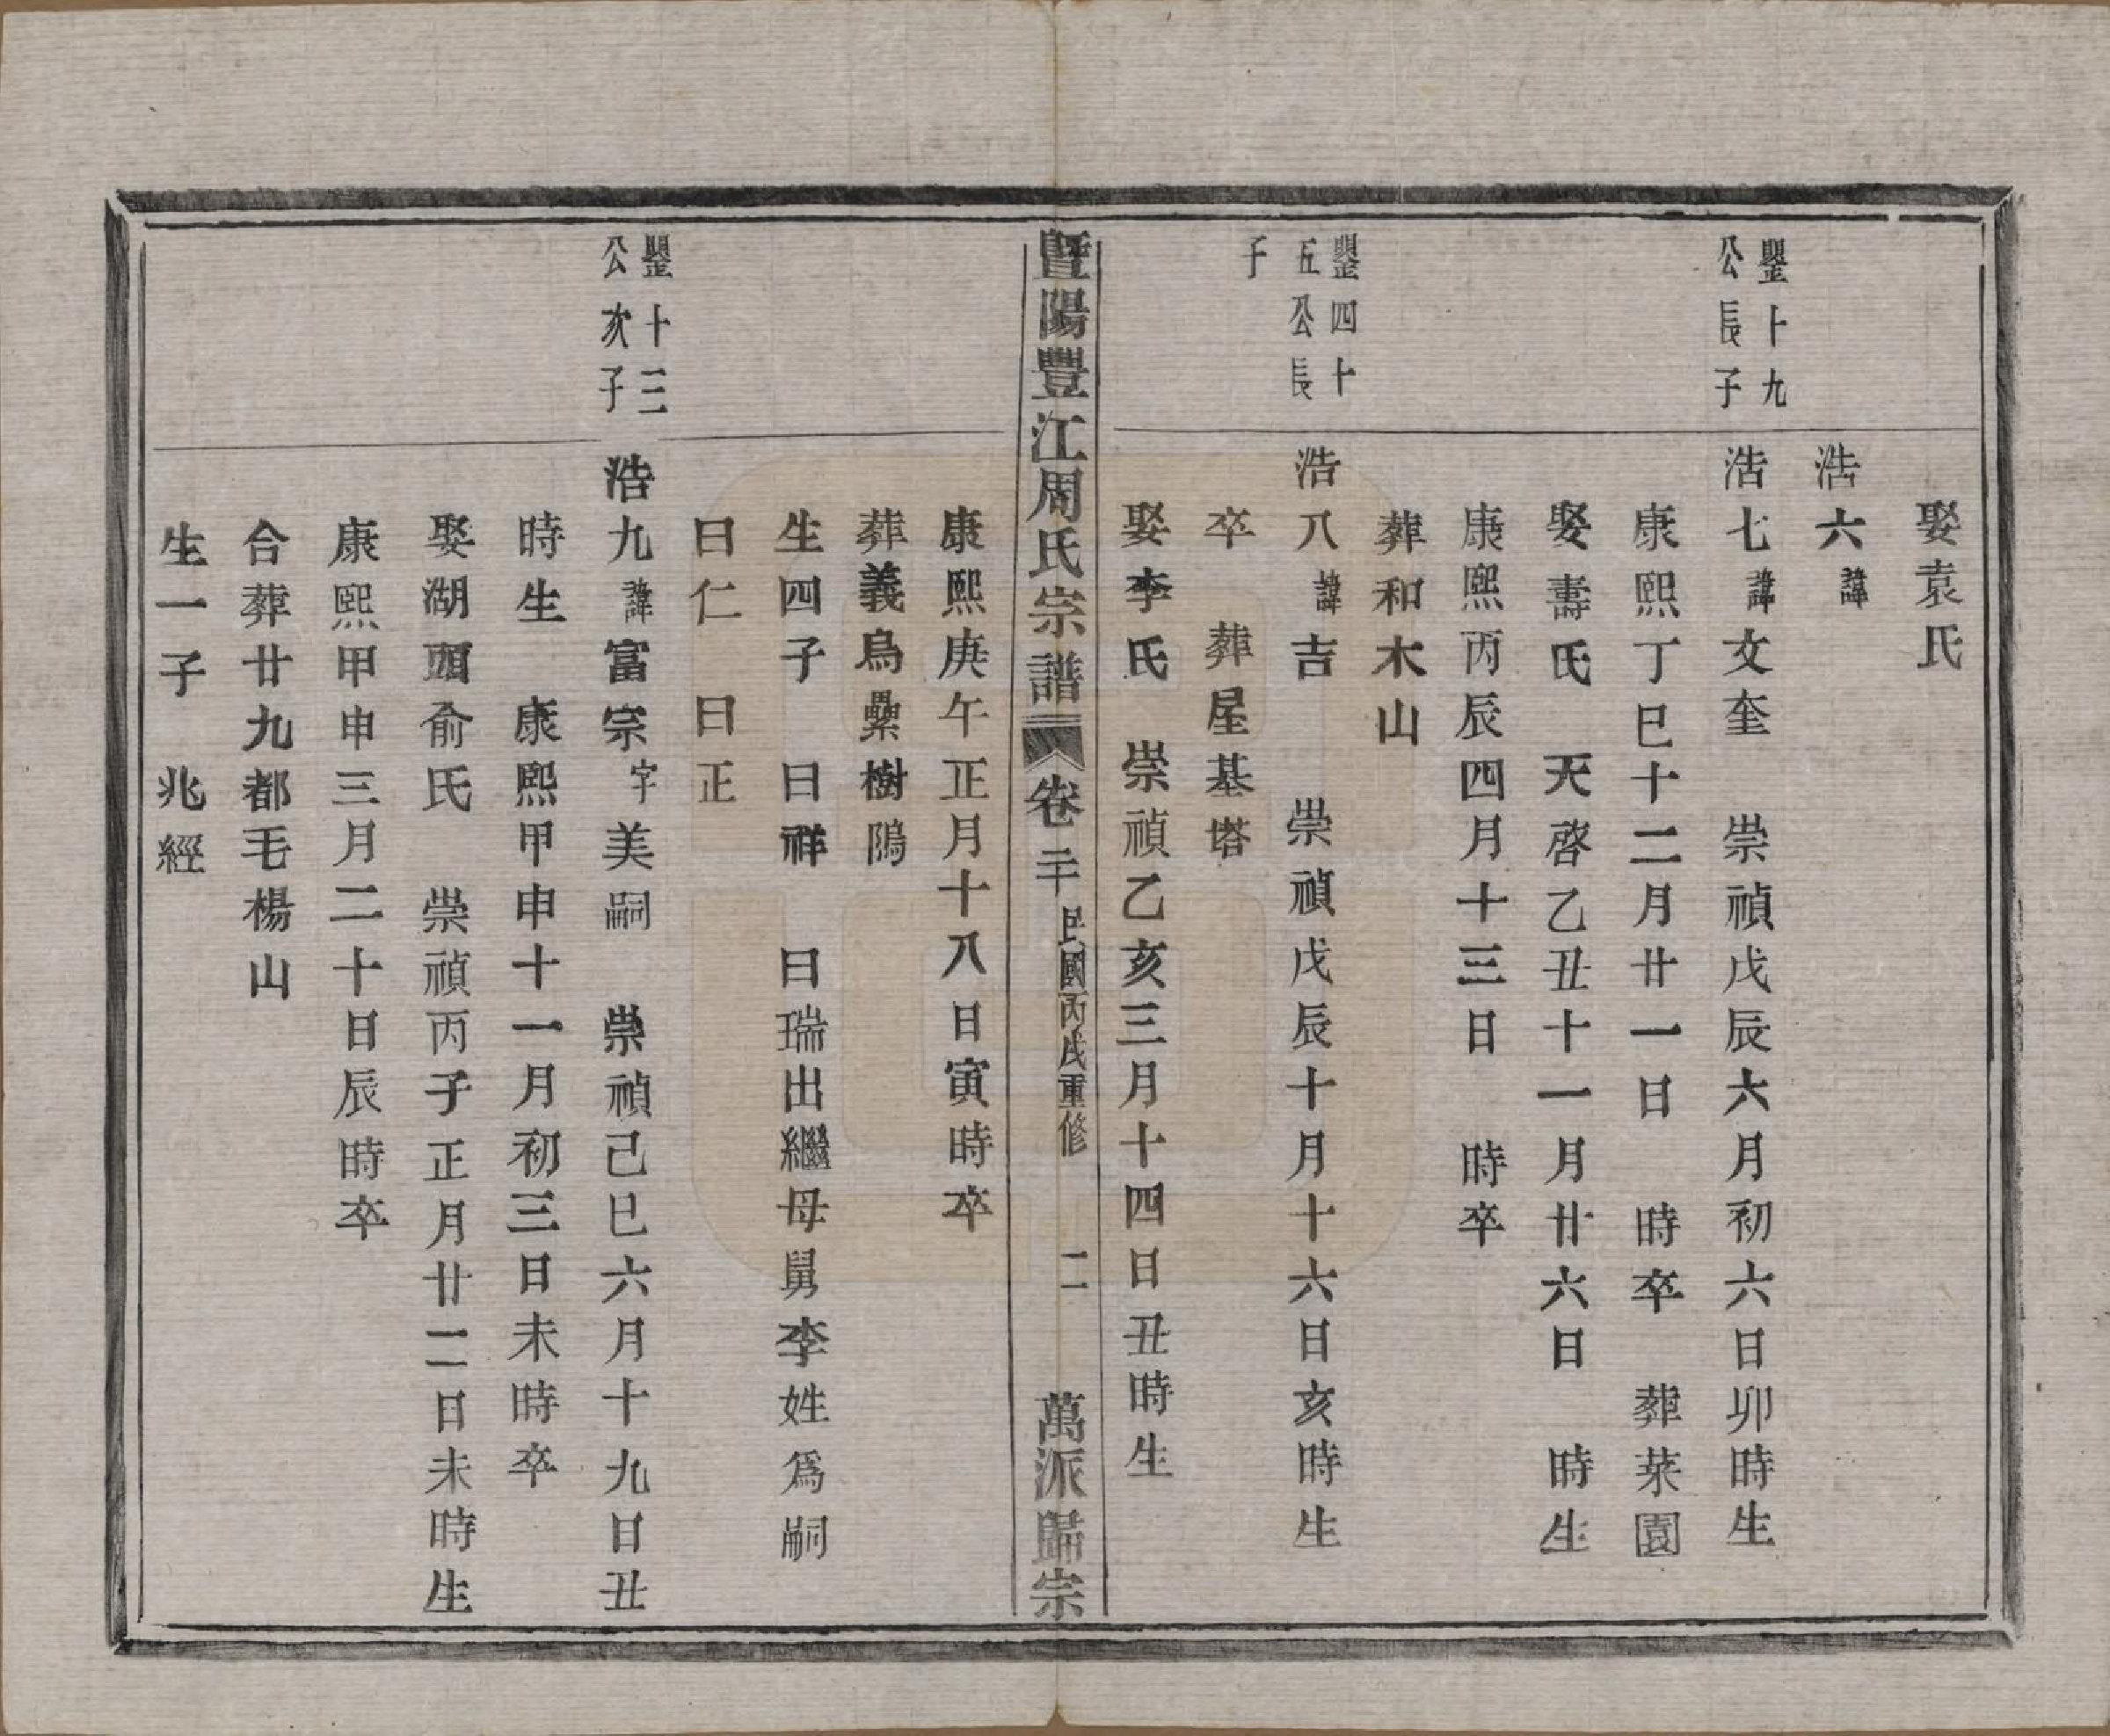 娶袁氏
浩六諱
鑍十九
公長子
浩七諱文奎　崇禎戊辰六月初六日卯時生
康熙丁巳十二月廿一日　時卒　葬菜園
娶壽氏　天啓乙丑十一月廿六日　時生
康熙丙辰四月十三日　時卒
葬和木山
四十
五公長
子
浩八諱吉　崇禎戊辰十月十六日亥時生
卒　葬屋基塔
娶李氏　崇禎乙亥三月十四日丑時生
暨陽豐江周氏宗譜　卷二十　民國丙戌重修　二　萬派歸宗
康熙庚午正月十八日寅時卒
葬義烏櫐樹隝
生四子　曰祥　曰瑞出繼母舅李姓爲嗣
曰仁　曰正
十三
公次子
浩九諱富宗字美嗣　崇禎己巳六月十九日丑
時生　康熙甲申十一月初三日未時卒
娶湖頭俞氏　崇禎丙子正月廿二日未時生
康熙甲申三月二十日辰時卒
合葬廿九都毛楊山
生一子　兆經